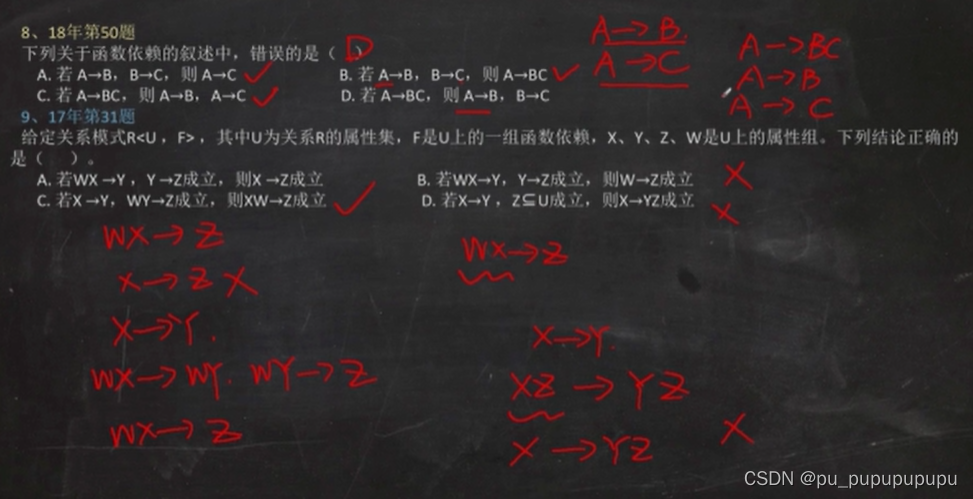 8、18年第50题
下列关于函数依赖的叙述中，错误的是（ D ）
A. 若 A→B，B→C，则 A→C ✓
B. 若 A→B，B→C，则 A→BC ✓
C. 若 A→BC，则 A→B，A→C ✓
D. 若 A→BC，则 A→B，B→C
A→B.
A→C
A→BC
A→B
A→C
9、17年第31题
给定关系模式R<U，F>，其中U为关系R的属性集，F是U上的一组函数依赖，X、Y、Z、W是U上的属性组。下列结论正确的
是（ ）。
A. 若WX→Y，Y→Z成立，则X→Z成立
B. 若WX→Y，Y→Z成立，则W→Z成立 X
C. 若X→Y，WY→Z成立，则XW→Z成立 ✓
D. 若X→Y，Z⊆U成立，则X→YZ成立 X
WX→Z
X→Z X
X→Y.
WX→WY. WY→Z
WX→Z
WX→Z
X→Y.
XZ→YZ
X→YZ X
CSDN @pu_pupupupupu